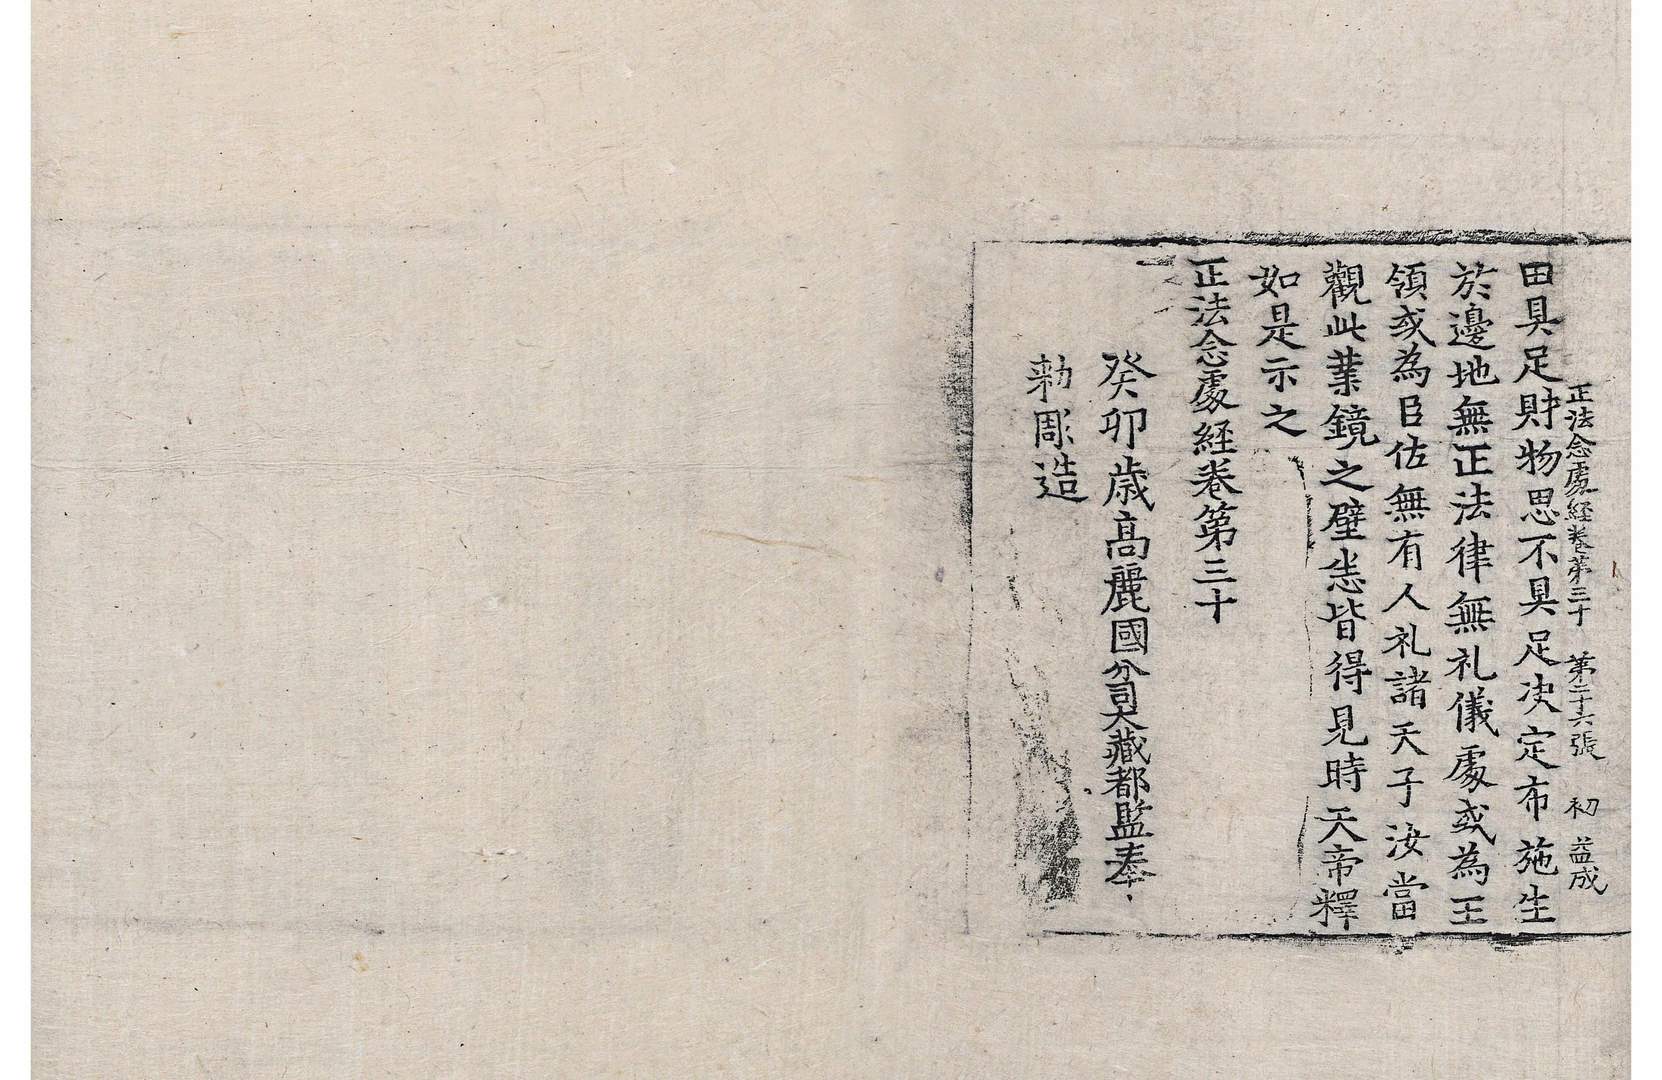 正法念處経卷第三十 第二十六張 初 益成
田具足財物思不具足决定布施生
於邊地無正法律無礼儀處或為王
領或為臣佐無有人礼諸天子汝當
觀此業鏡之壁悉皆得見時天帝釋
如是示之
正法念處経卷第三十
癸卯歳高麗國分司大藏都監奉
勅彫造